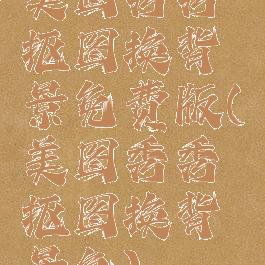 美图秀秀
抠图换背
景免费版(
美图秀秀
抠图换背
景免)